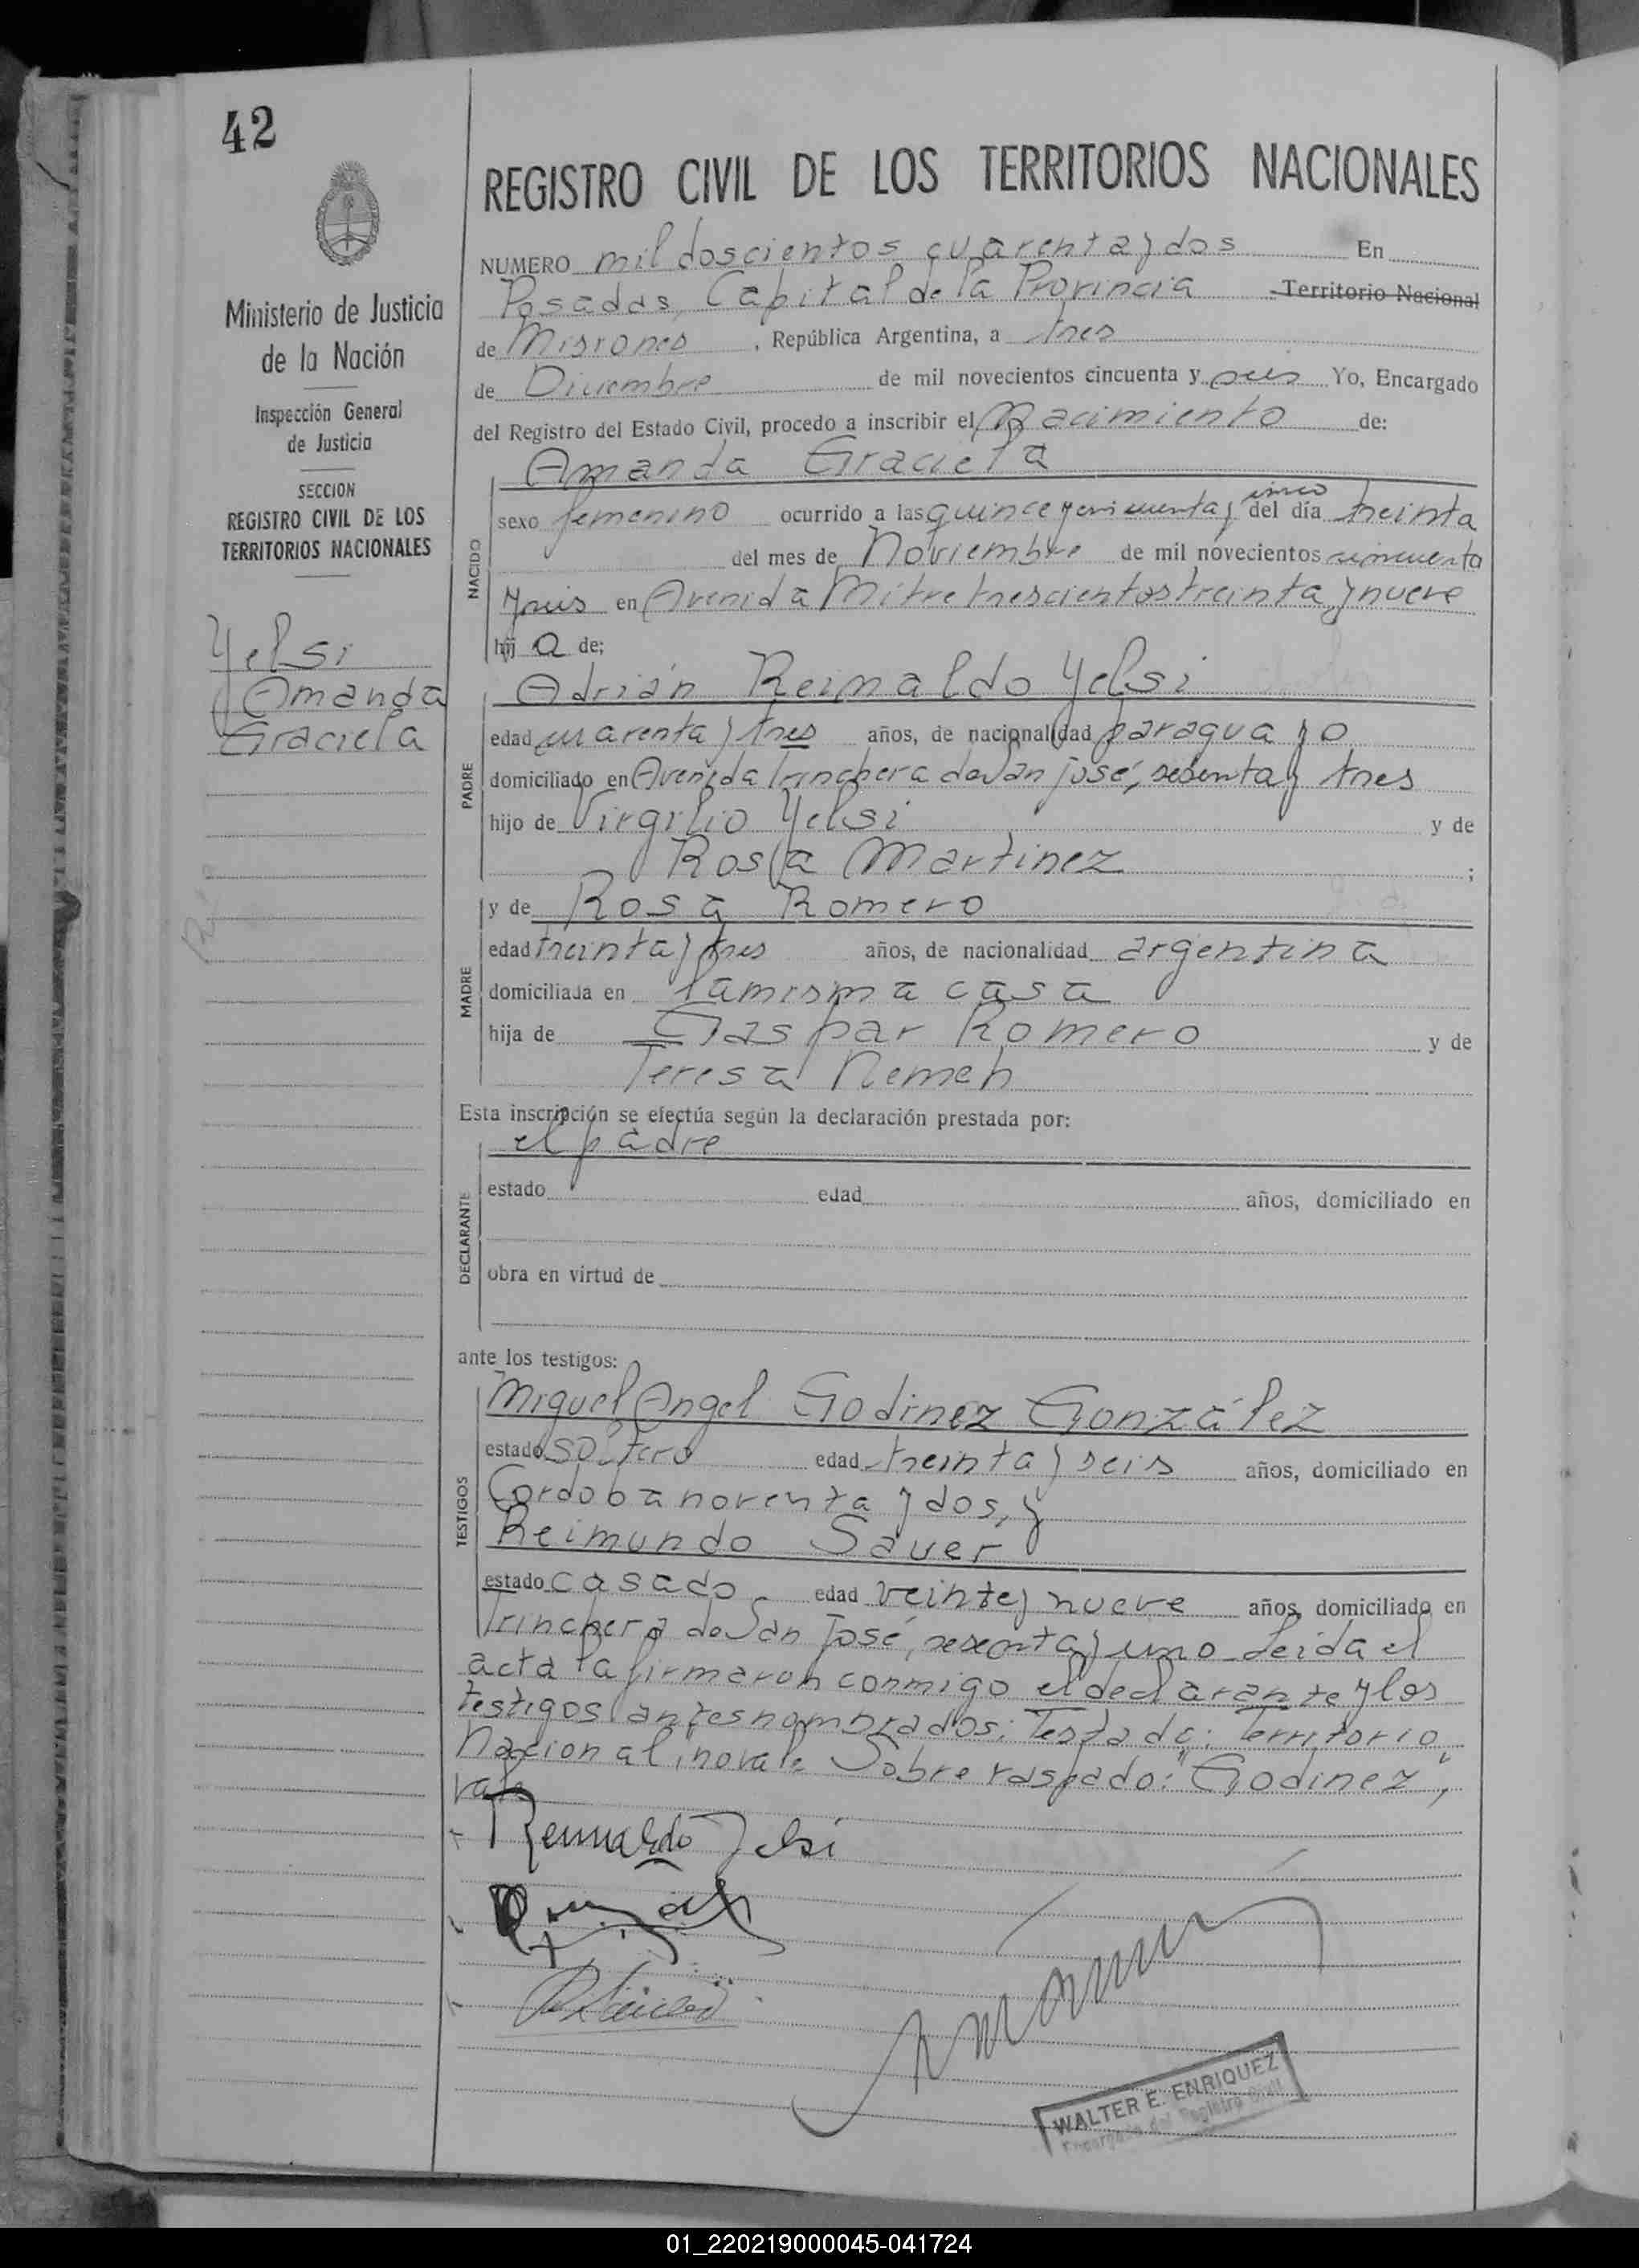 42
REGISTRO CIVIL DE LOS TERRITORIOS NACIONALES
NUMERO mil doscientos cuarenta y dos En
Posadas, Capital de la Provincia Territorio Nacional
de Misiones , República Argentina, a tres
de Diciembre de mil novecientos cincuenta y seis Yo, Encargado
del Registro del Estado Civil, procedo a inscribir el Nacimiento de:
Amanda Graciela
NACIDO
sexo femenino ocurrido a las quince y cincuenta y cinco del día treinta
del mes de Noviembre de mil novecientos cincuenta
y seis en Avenida Mitre trescientos treinta y nueve
hij a de;
Ministerio de Justicia
de la Nación
Inspección General
de Justicia
SECCION
REGISTRO CIVIL DE LOS
TERRITORIOS NACIONALES
Yelsi
Amanda
Graciela
PADRE
Adrián Reinaldo Yelsi
edad cuarenta y tres años, de nacionalidad paraguayo
domiciliado en Avenida Trinchera de San José, sesenta y tres
hijo de Virgilio Yelsi y de
Rosa Martinez ;
MADRE
y de Rosa Romero
edad treinta y tres años, de nacionalidad argentina
domiciliada en la misma casa
hija de Gaspar Romero y de
Teresa Nemeh
Esta inscripción se efectúa según la declaración prestada por:
DECLARANTE
el padre
estado edad años, domiciliado en
obra en virtud de
ante los testigos:
TESTIGOS
Miguel Angel Godinez González
estado soltero edad treinta y seis años, domiciliado en
Cordoba noventa y dos, y
Reimundo Sauer
estado casado edad veinte y nueve años, domiciliado en
Trinchera de San José, sesenta y uno Leida el
acta la firmaron conmigo el declarante y los
testigos antes nombrados: Testado: Territorio
Nacional, no vale Sobre raspado: "Godinez",
vale
Reinaldo Yelsi
WALTER E. ENRIQUEZ
Encargado del Registro Civil
01_220219000045-041724